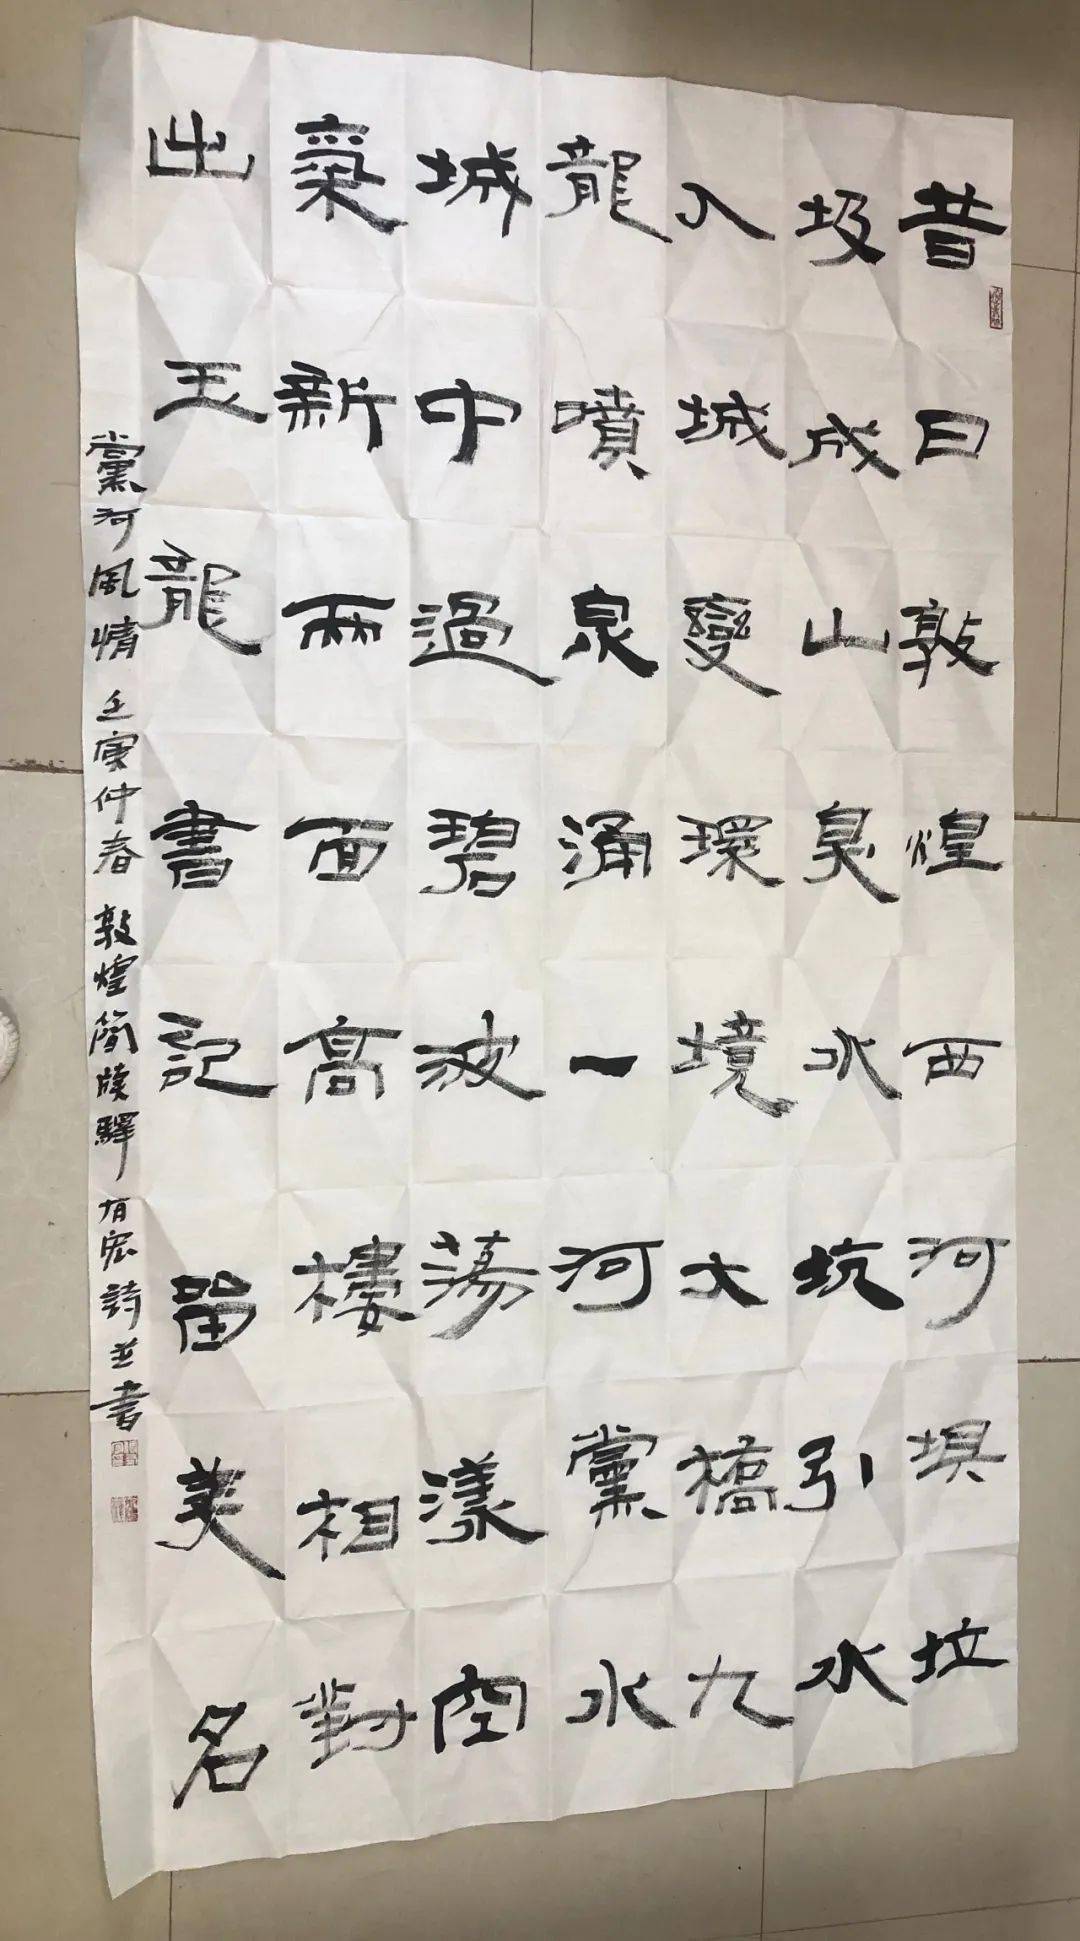 昔日敦煌西河垻垃
圾成山臭水坑引水
入城變環境大橋九
龍噴泉涌一河黨水
城中過碧波蕩漾空
氣新兩面高樓相對
出玉龍書記留美名
黨河風情 壬寅仲春 敦煌簡牘驛 有宏詩並書